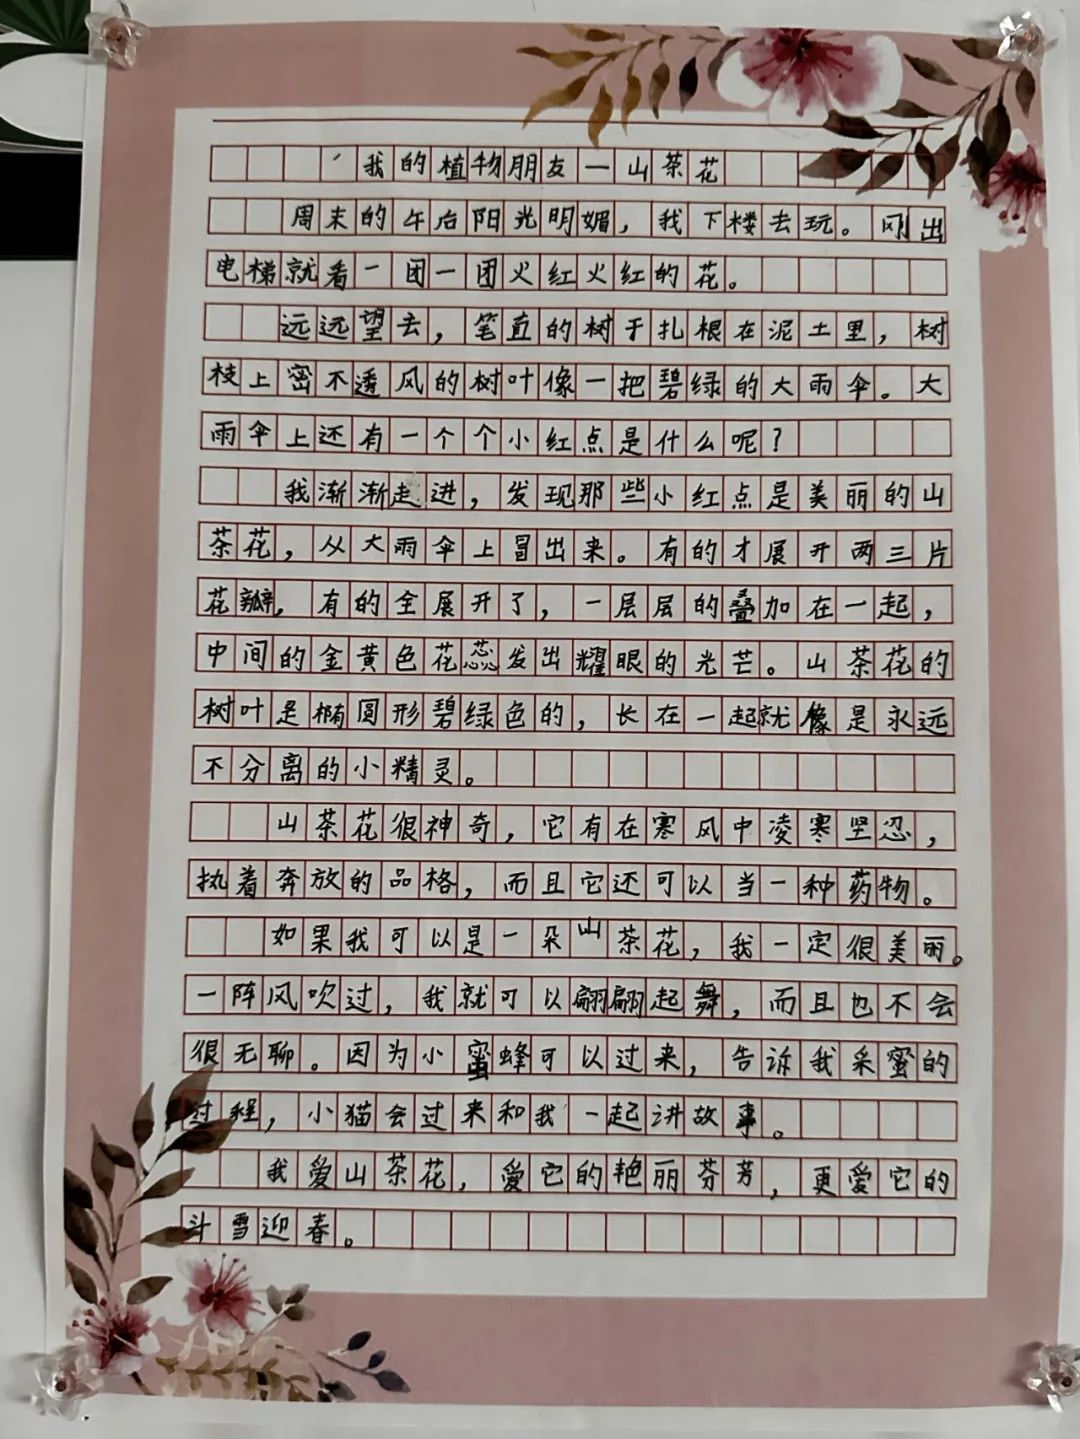 我的植物朋友—山茶花
周末的午后阳光明媚，我下楼去玩。刚出
电梯就看一团一团火红火红的花。
远远望去，笔直的树于扎根在泥土里，树
枝上密不透风的树叶像一把碧绿的大雨伞。大
雨伞上还有一个个小红点是什么呢？
我渐渐走进，发现那些小红点是美丽的山
茶花，从大雨伞上冒出来。有的才展开两三片
花瓣，有的全展开了，一层层的叠加在一起，
中间的金黄色花蕊发出耀眼的光芒。山茶花的
树叶是椭圆形碧绿色的，长在一起就像是永远
不分离的小精灵。
山茶花很神奇，它有在寒风中凌寒坚忍，
执着奔放的品格，而且它还可以当一种药物。
如果我可以是一朵山茶花，我一定很美丽。
一阵风吹过，我就可以翩翩起舞，而且也不会
很无聊。因为小蜜蜂可以过来，告诉我采蜜的
过程，小猫会过来和我一起讲故事。
我爱山茶花，爱它的艳丽芬芳，更爱它的
斗雪迎春。